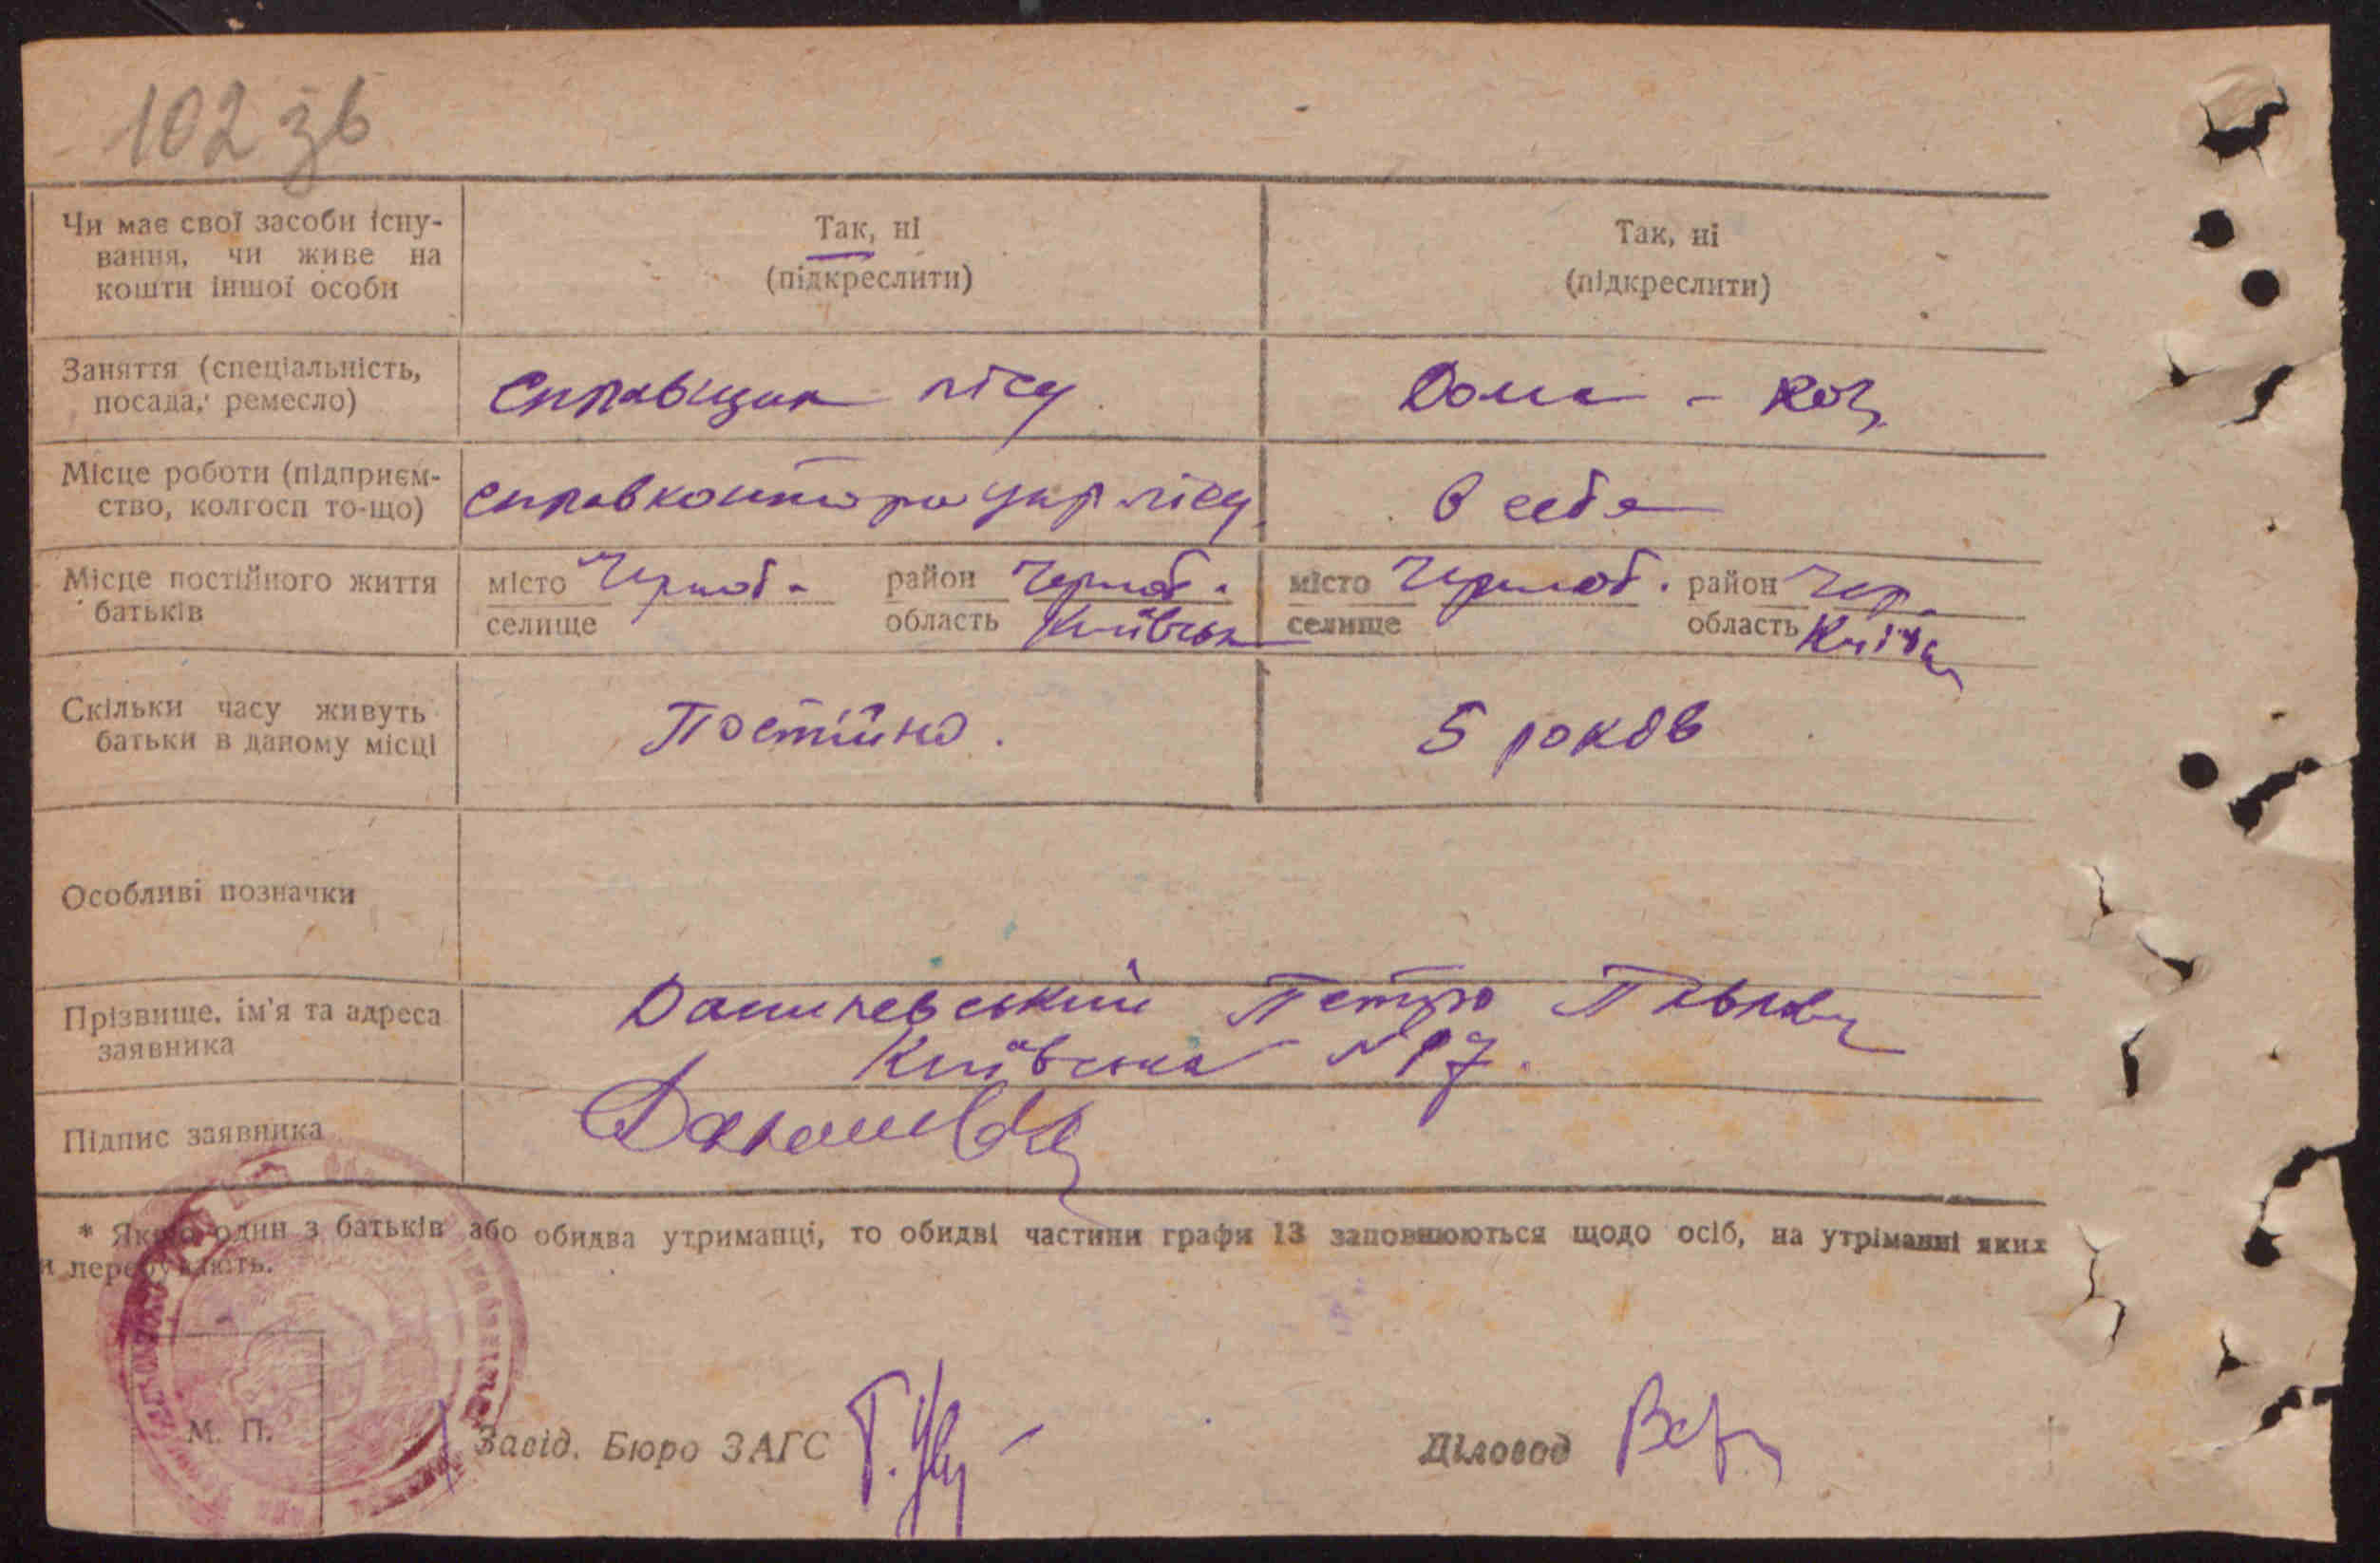 102 зв
Чи має свої засоби існу-
вання, чи живе на
кошти іншої особи
Так, ні
(підкреслити)
Так, ні
(підкреслити)
Заняття (спеціальність,
посада, ремесло)
Справщик лісу
Дома - хоз,
Місце роботи (підприєм-
ство, колгосп то-що)
Справконтора укрлісу
В себе
Місце постійного життя
батьків
місто Черноб. район Черноб.
селище область Київськ
місто Черноб. район Чер.
селище область
Скільки часу живуть
батьки в даному місці
Постійно.
5 років
Особливі позначки
Прізвище, ім'я та адреса
заявника
Данилевський Петро Павлов
Київська №17.
Підпис заявника
* Якщо один з батьків або обидва утриманці, то обидві частини графи 13 заповнюються щодо осіб, на утріманні яких
и перебувають.
М. П.
Завід. Бюро ЗАГС
Діловод